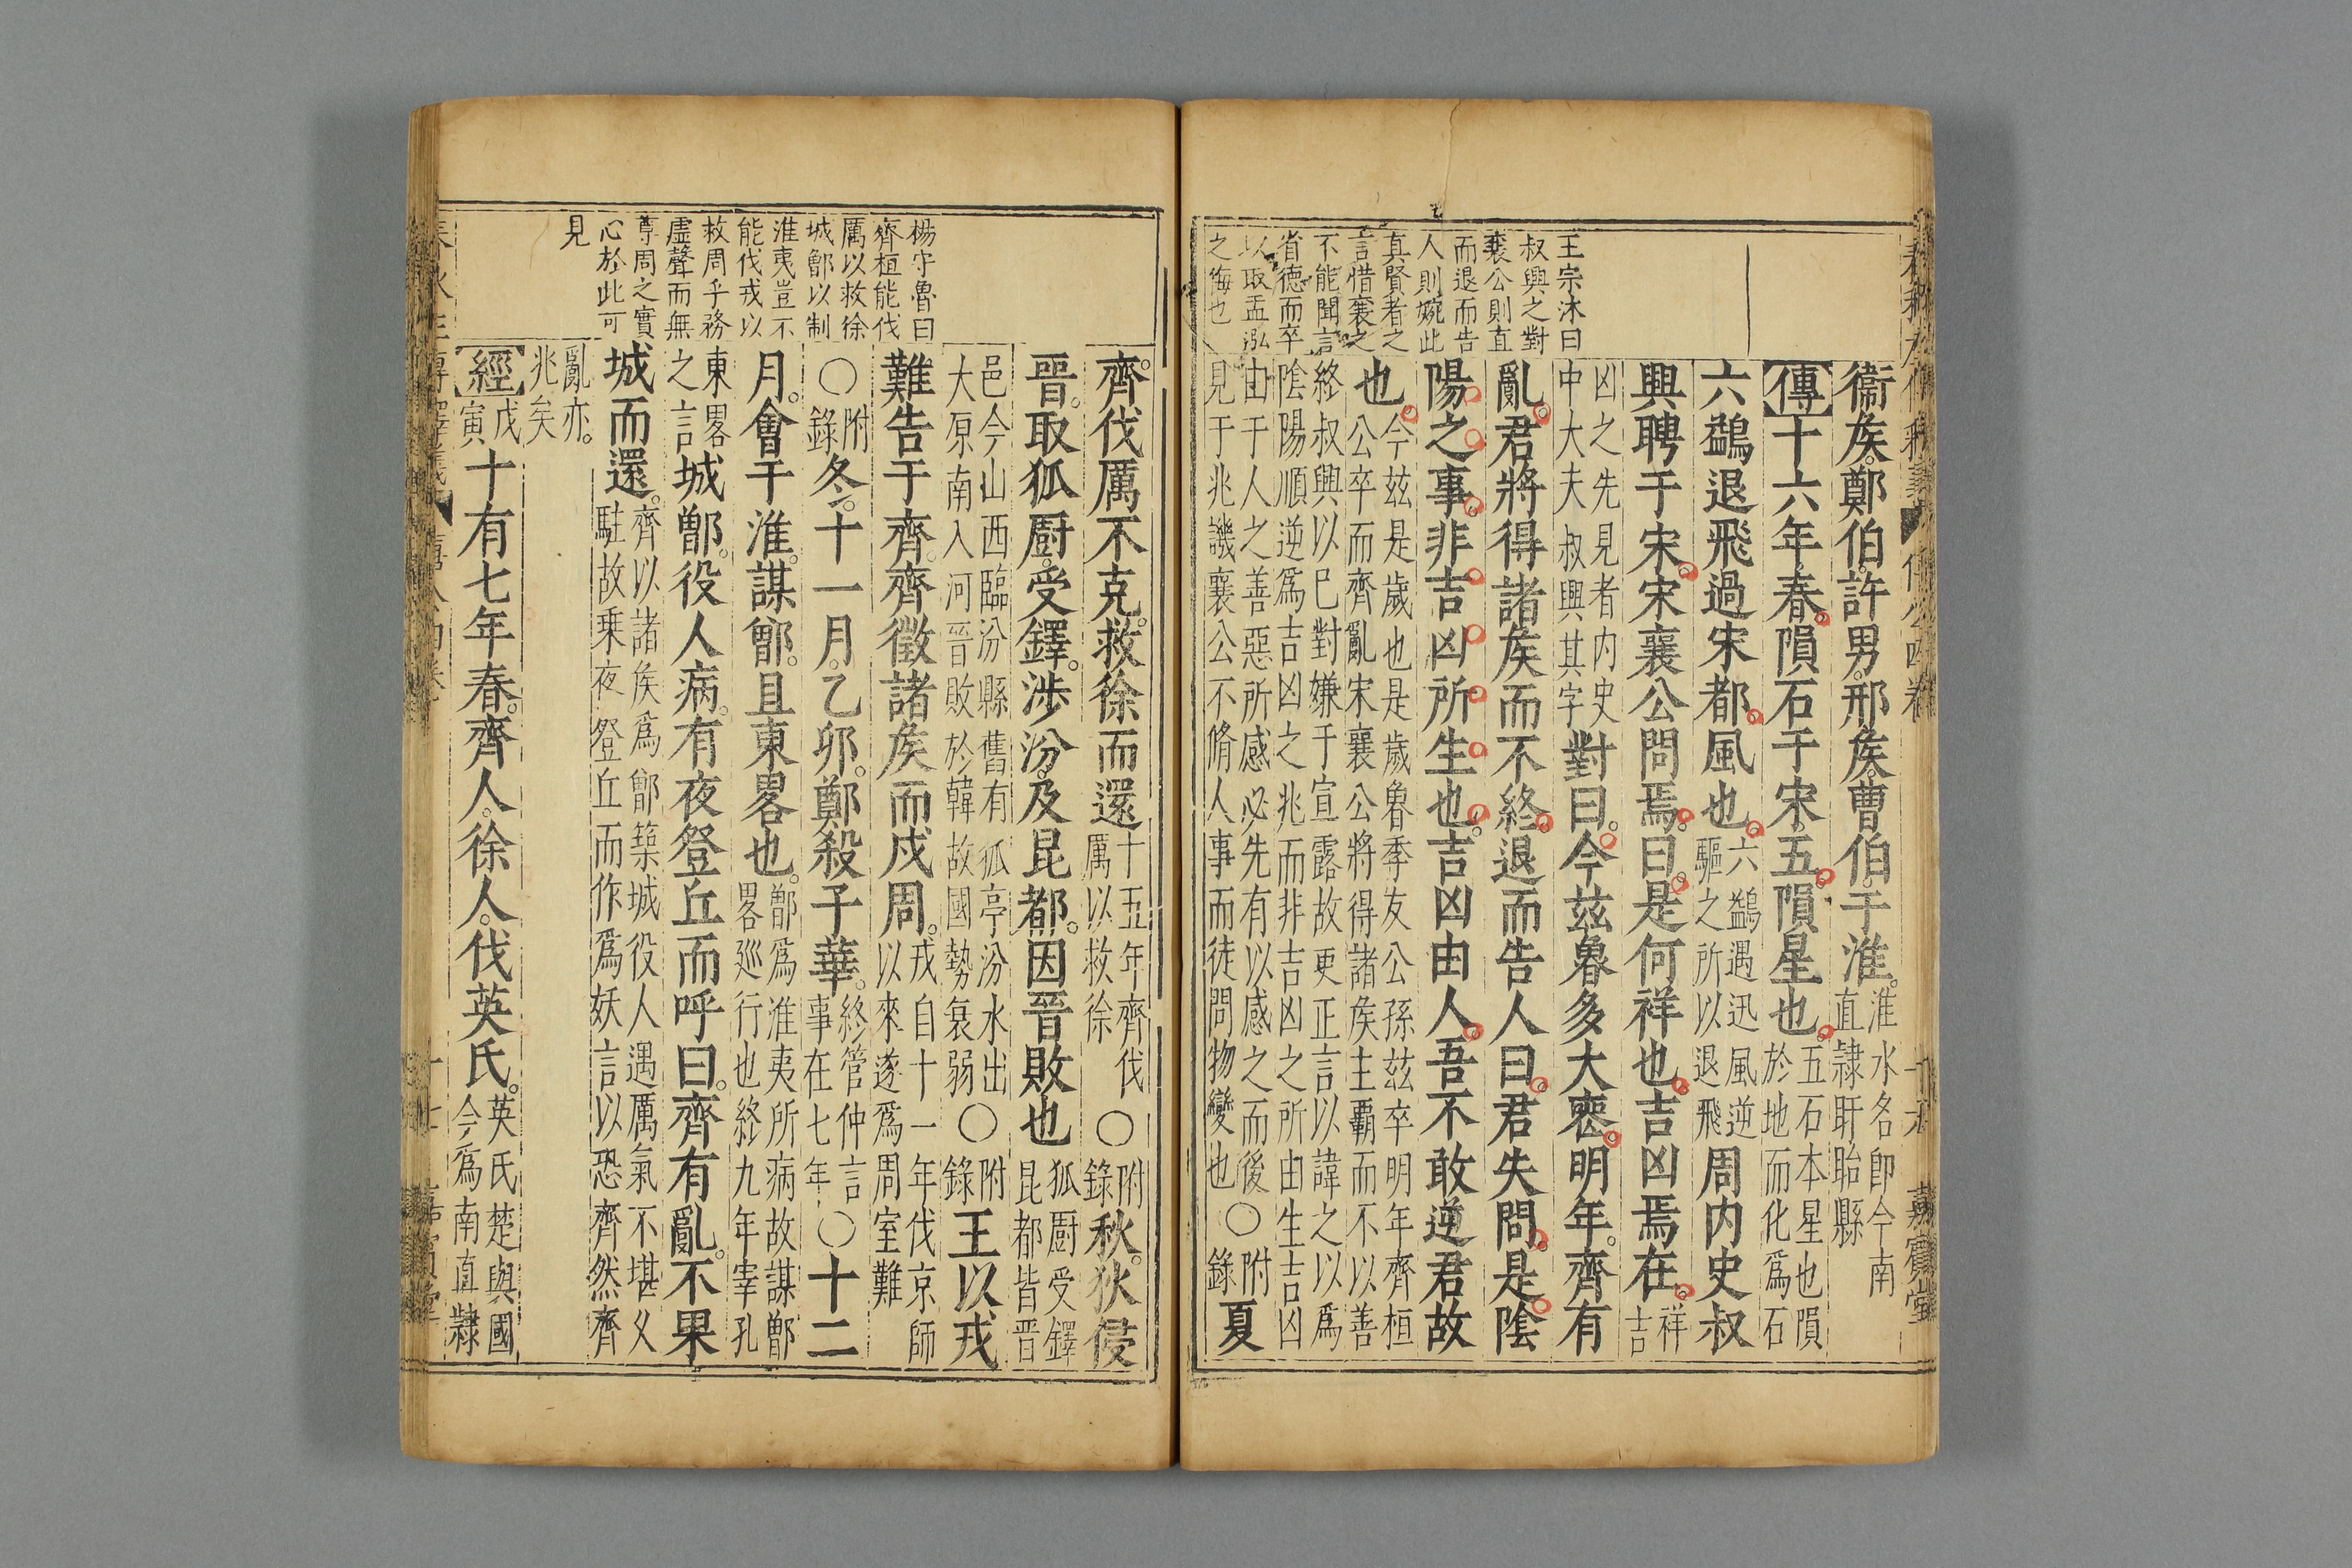 王宗沐曰
叔興之對
襄公則直
而退而告
人則婉此
真賢者之
言惜襄之
不能聞言
省德而卒
以取盂泓
之悔也
衞矦鄭伯許男邢矦曹伯于淮淮水名卽今南直隷盱眙縣
傳十六年春隕石于宋五隕星也五石本星也隕於地而化爲石
六鷁退飛過宋都風也六鷁遇迅風逆驅之所以退飛周内史叔
興聘于宋宋襄公問焉曰是何祥也吉凶焉在祥吉
凶之先見者内史中大夫叔興其字對曰今玆魯多大喪明年齊有
亂君將得諸矦而不終退而告人曰君失問是陰
陽之事非吉凶所生也吉凶由人吾不敢逆君故
也今玆是歲也是歲魯季友公孫玆卒明年齊桓公卒而齊亂宋襄公將得諸矦主覇而不以善
終叔興以巳對嫌于宣露故更正言以諱之以爲陰陽順逆爲吉凶之兆而非吉凶之所由生吉凶
由于人之善惡所感必先有以感之而後見于兆譏襄公不脩人事而徒問物變也○附錄夏
嘉賓堂
楊守魯曰
齊桓能伐
厲以救徐
城鄫以制
淮夷豈不
能伐戎以
救周乎務
虛聲而無
尊周之實
心於此可
見
齊伐厲不克救徐而還十五年齊伐厲以救徐○附錄秋狄侵
晉取狐厨受鐸涉汾及昆都因晉敗也狐厨受鐸昆都皆晉
邑今山西臨汾縣舊有狐亭汾水出大原南入河晉敗於韓故國勢衰弱○附錄王以戎
難告于齊齊徵諸矦而戍周戎自十一年伐京師以來遂爲周室難
○附錄冬十一月乙卯鄭殺子華終管仲言事在七年○十二
月會于淮謀鄫且東畧也鄫爲淮夷所病故謀鄫畧巡行也終九年宰孔
東畧之言城鄫役人病有夜登丘而呼曰齊有亂不果
城而還齊以諸矦爲鄫築城役人遇厲氣不堪乂駐故乗夜登丘而作爲妖言以恐齊然齊
亂亦兆矣
經戊寅十有七年春齊人徐人伐英氏英氏楚與國今爲南直隸